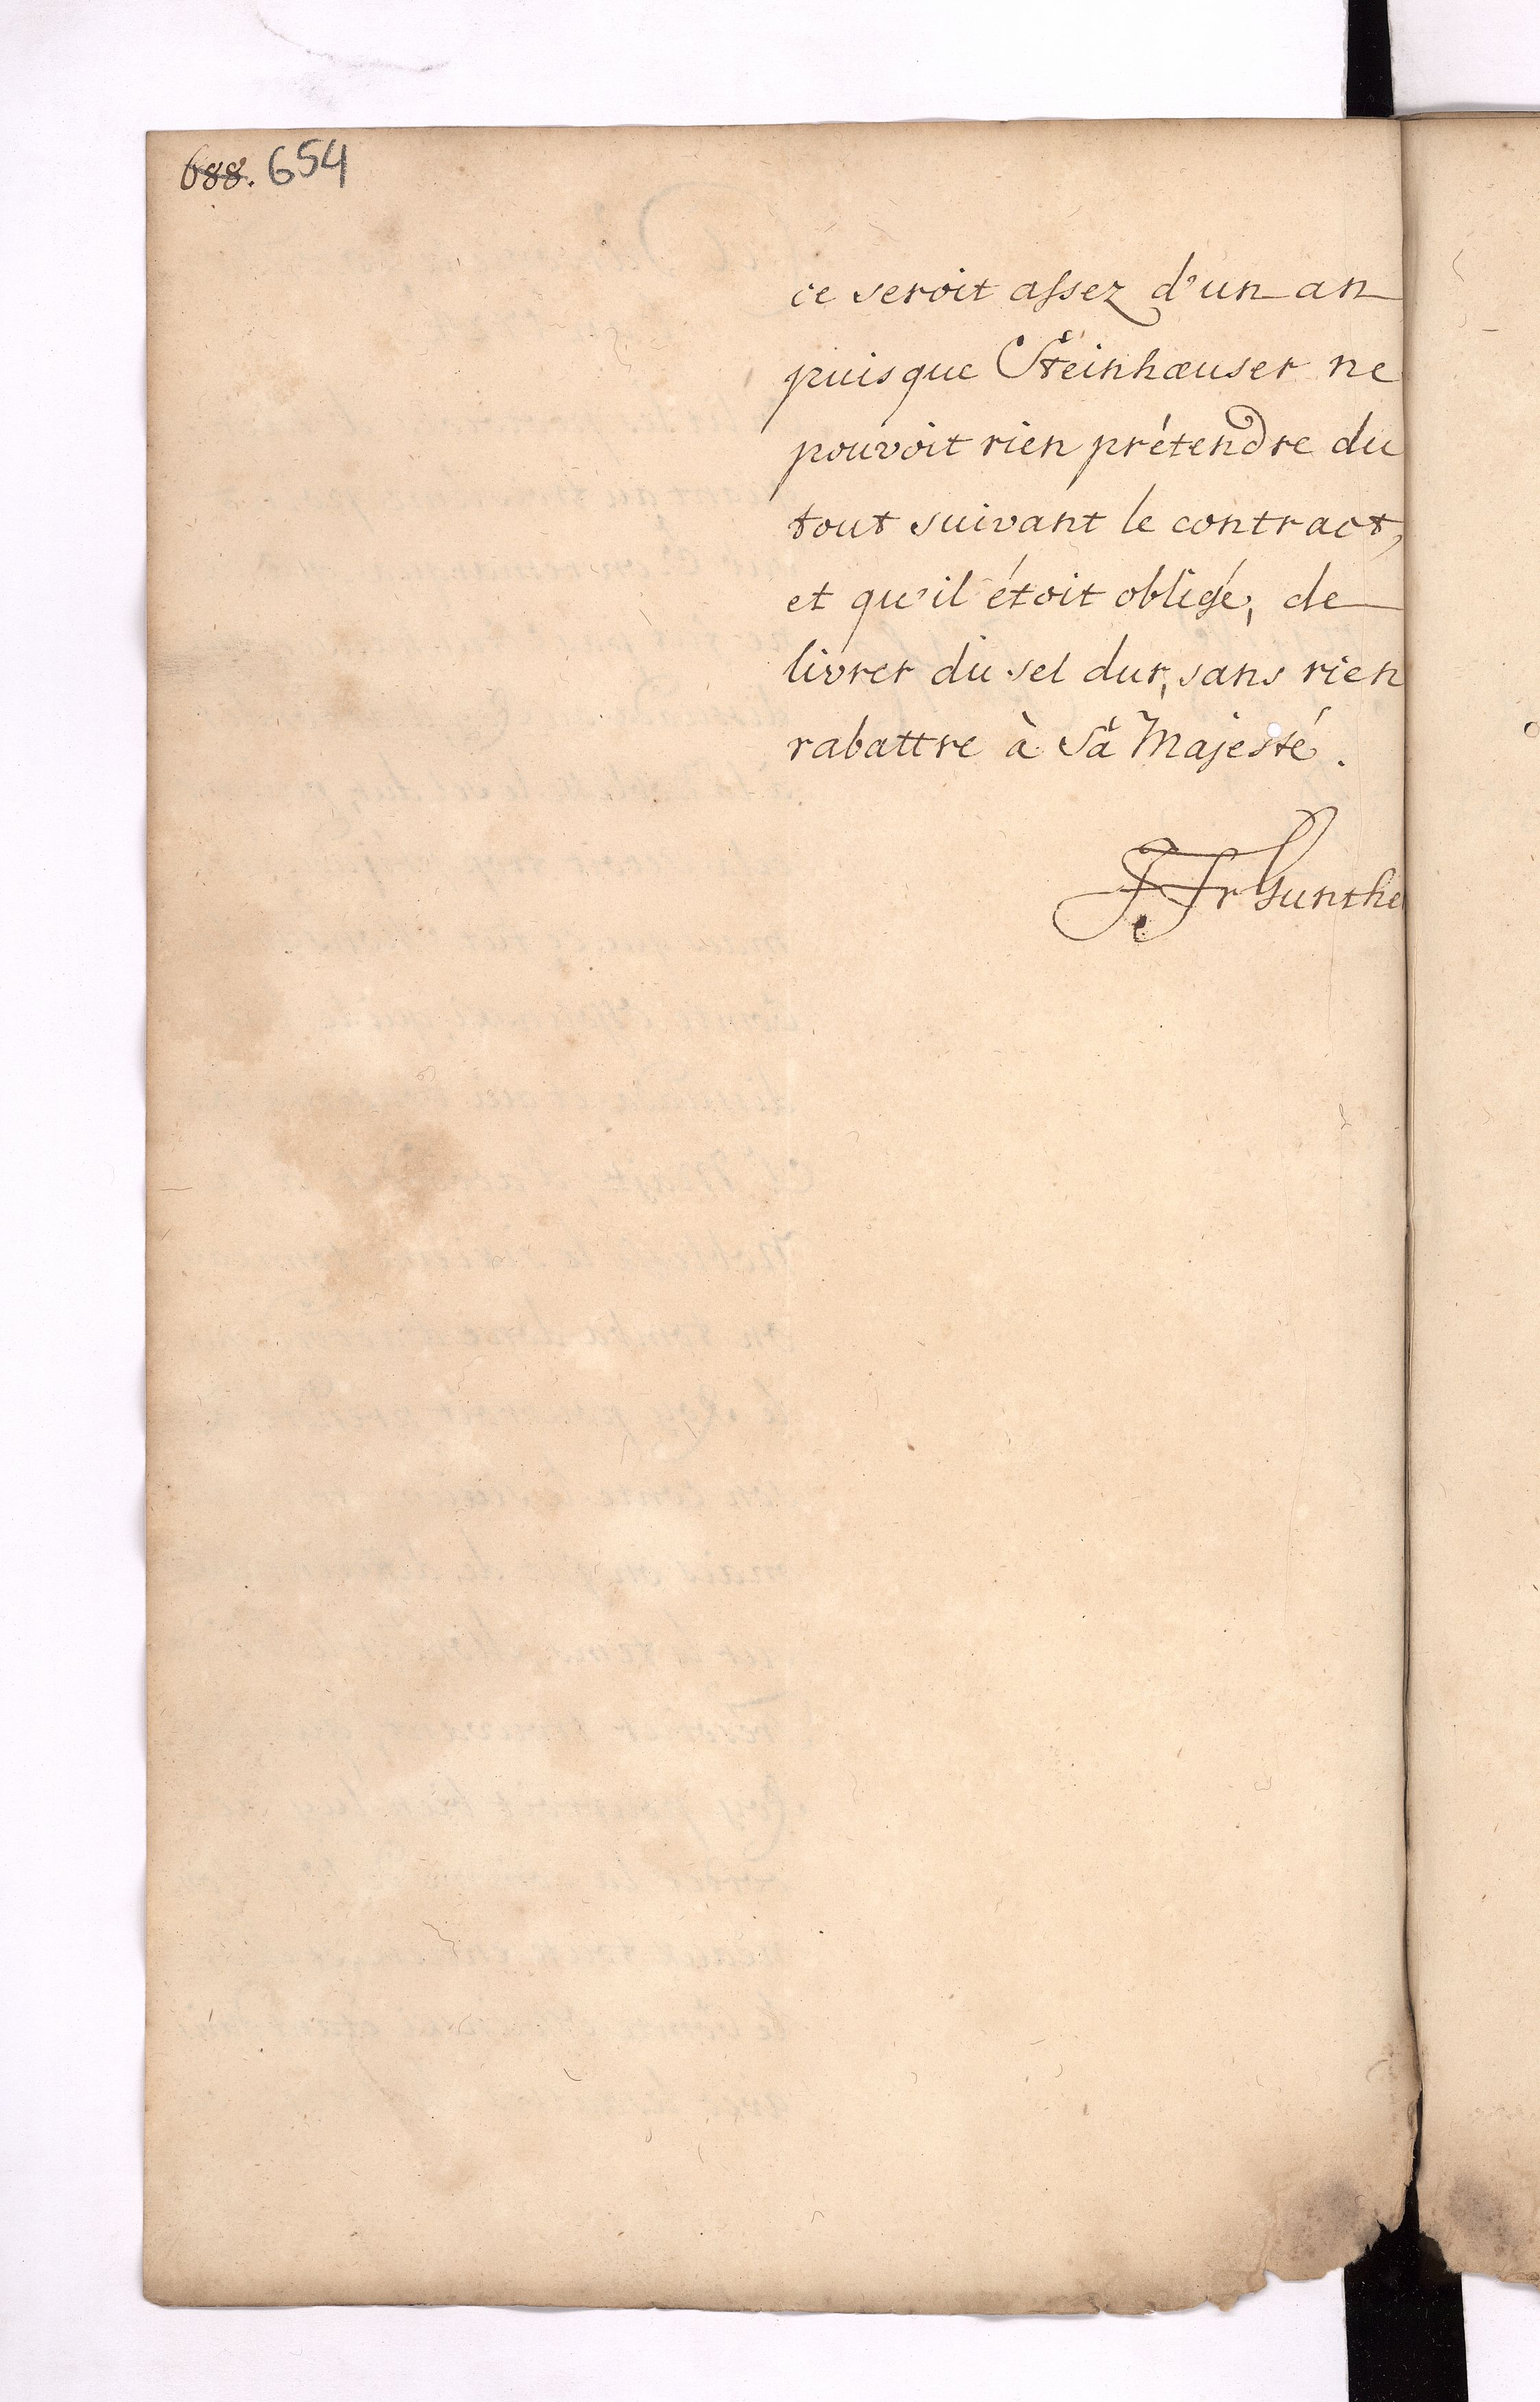 688. 654
ce seroit assez d'un an
puisque Steinhæuser ne
pouvoit rien prétendre du
tout suivant le contract,
et qu'il étoit obligé, de
livrer du sel dur, sans rien
rabattre à Sa Majesté.
Fr Gunthe